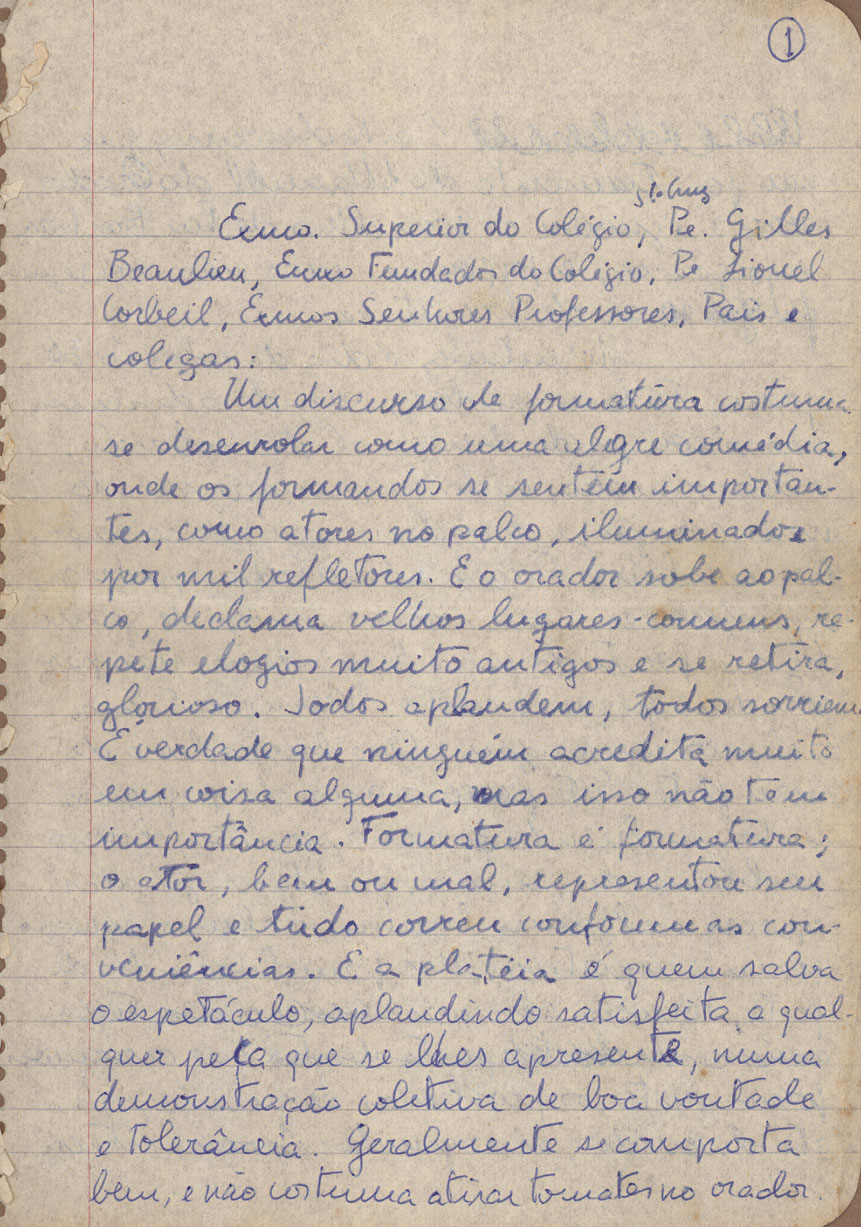 1
Sta. Cruz
Exmo. Superior do Colégio, Pe. Gilles
Beaulieu, Exmo Fundador do Colégio, Pe Lionel
Corbeil, Exmos Senhores Professores, Pais e
colegas:
Um discurso de formatura costuma
se desenrolar como uma alegre comédia,
onde os formandos se sentem importan-
tes, como atores no palco, iluminados
por mil refletores. E o orador sobe ao pal-
co, declama velhos lugares-comuns, re-
pete elogios muito antigos e se retira,
glorioso. Todos aplaudem, todos sorriem.
É verdade que ninguém acredita muito
em coisa alguma, mas isso não tem
importância. Formatura é formatura;
o ator, bem ou mal, representou seu
papel e tudo correu conforme as con-
veniências. E a platéia é quem salva
o espetáculo, aplaudindo satisfeita a qual-
quer peça que se lhes apresente, numa
demonstração coletiva de boa vontade
e tolerância. Geralmente se comporta
bem, e não costuma atirar tomates no orador.